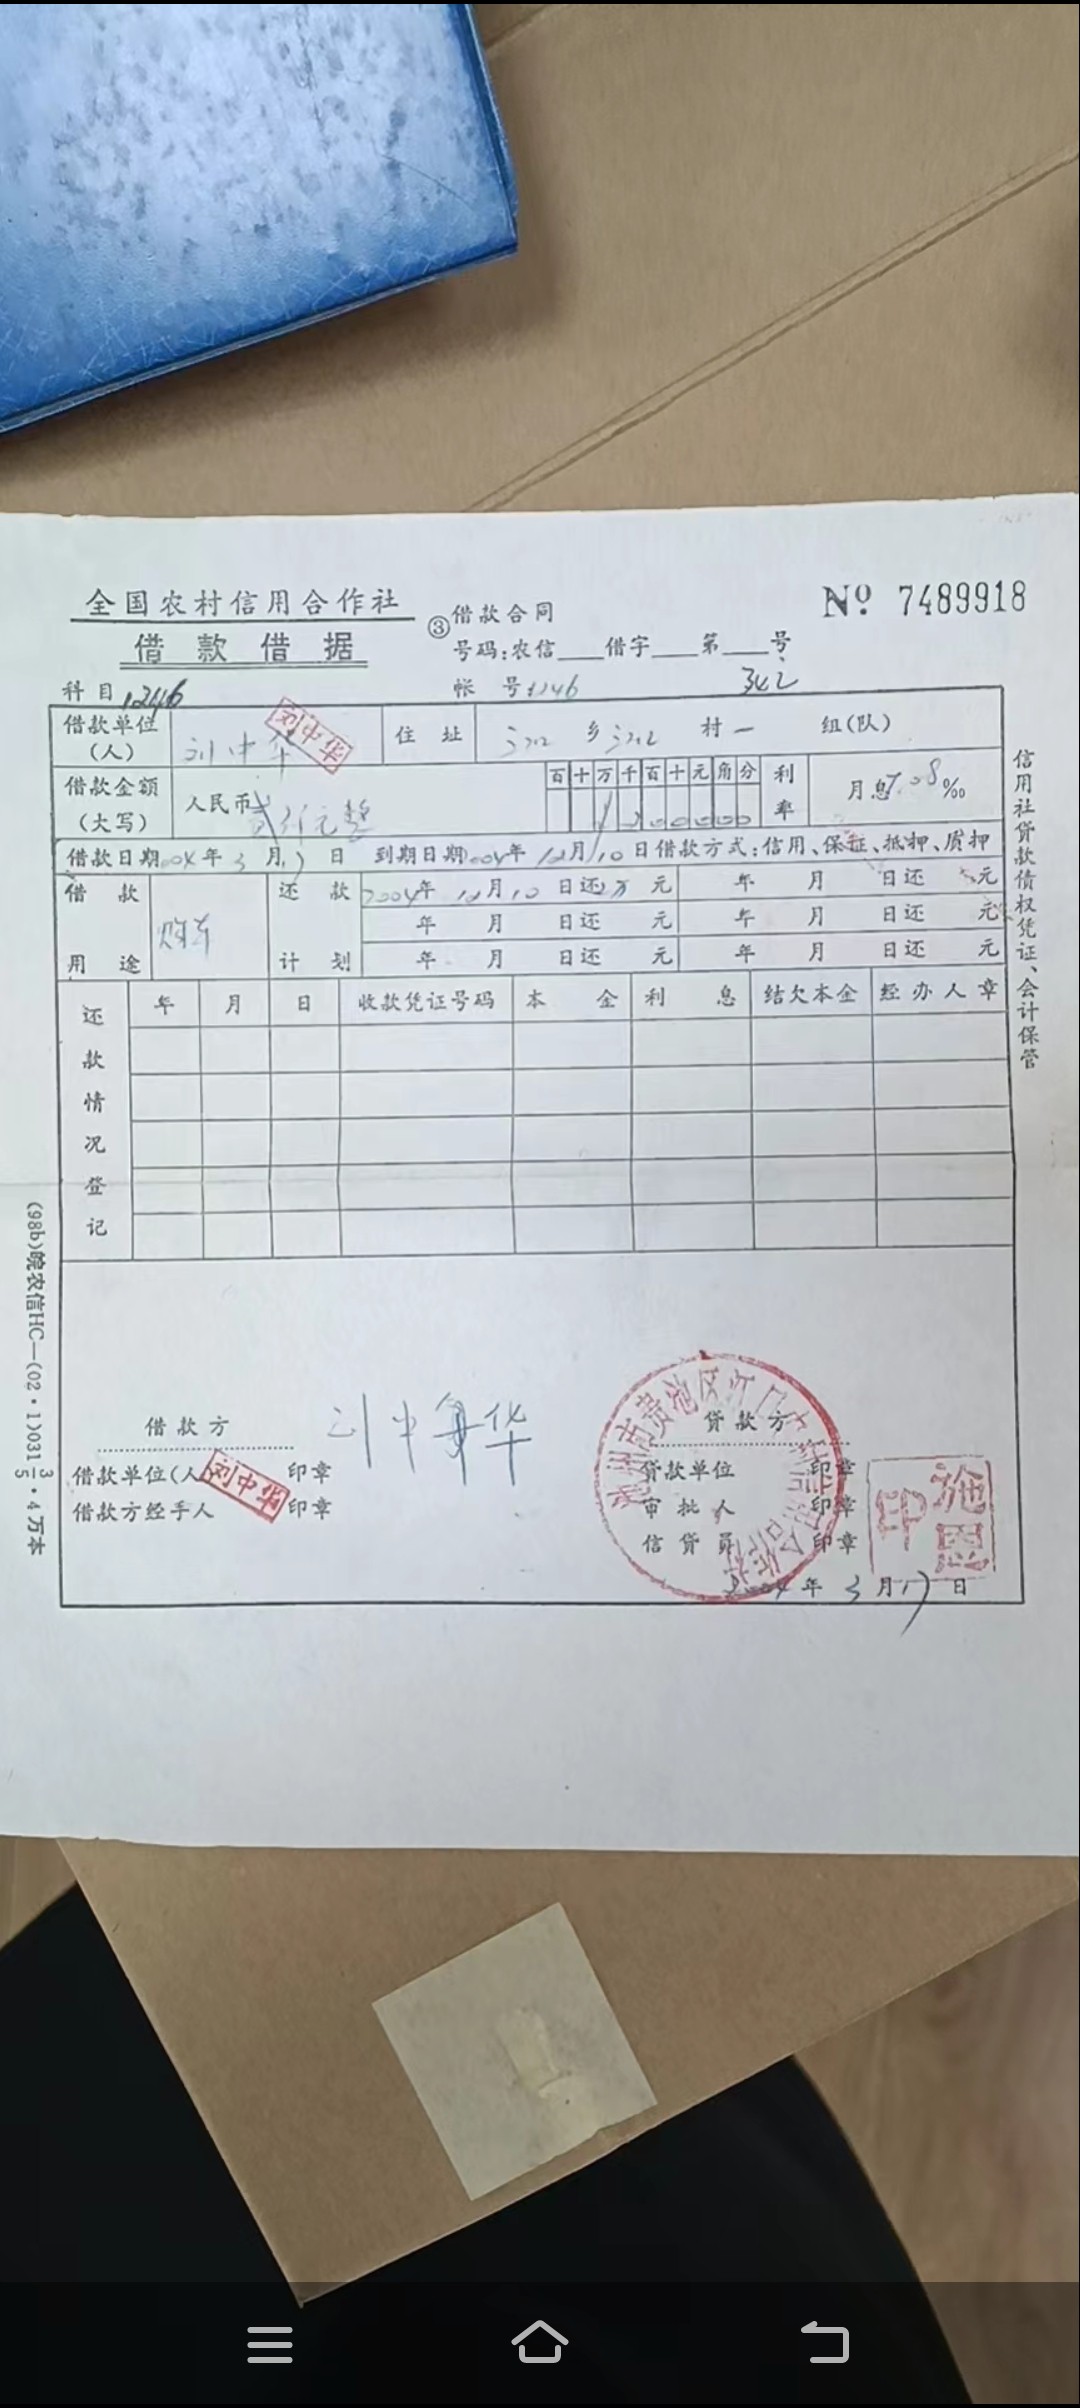 全国农村信用合作社
借款借据
③借款合同
号码:农信____借字____第____号
№ 7489918
342
科目1246 帐号1246
借款单位(人) 刘中华 刘中华 住址 乡 村一 组(队)
借款金额(大写) 人民币 元整 百十万千百十元角分 利率 月息7.08‰
借款日期2004年3月17日 到期日期2004年12月10日 借款方式:信用、保证、抵押、质押
借款用途 购车 还款计划 2004年12月10日还2万元 年 月 日还 元
年 月 日还 元 年 月 日还 元
年 月 日还 元 年 月 日还 元
还款情况登记 年 月 日 收款凭证号码 本金 利息 结欠本金 经办人章
信用社贷款债权凭证、会计保管
(98b)皖农信HC—(02·1)031 3/5·4万本
借款方 刘中华 贷款方
借款单位(人) 刘中华 印章 贷款单位 印章
借款方经手人 印章 审批人 印章
信贷员 印章
池州市贵池区 信用合作社
施恩印
2004年3月17日